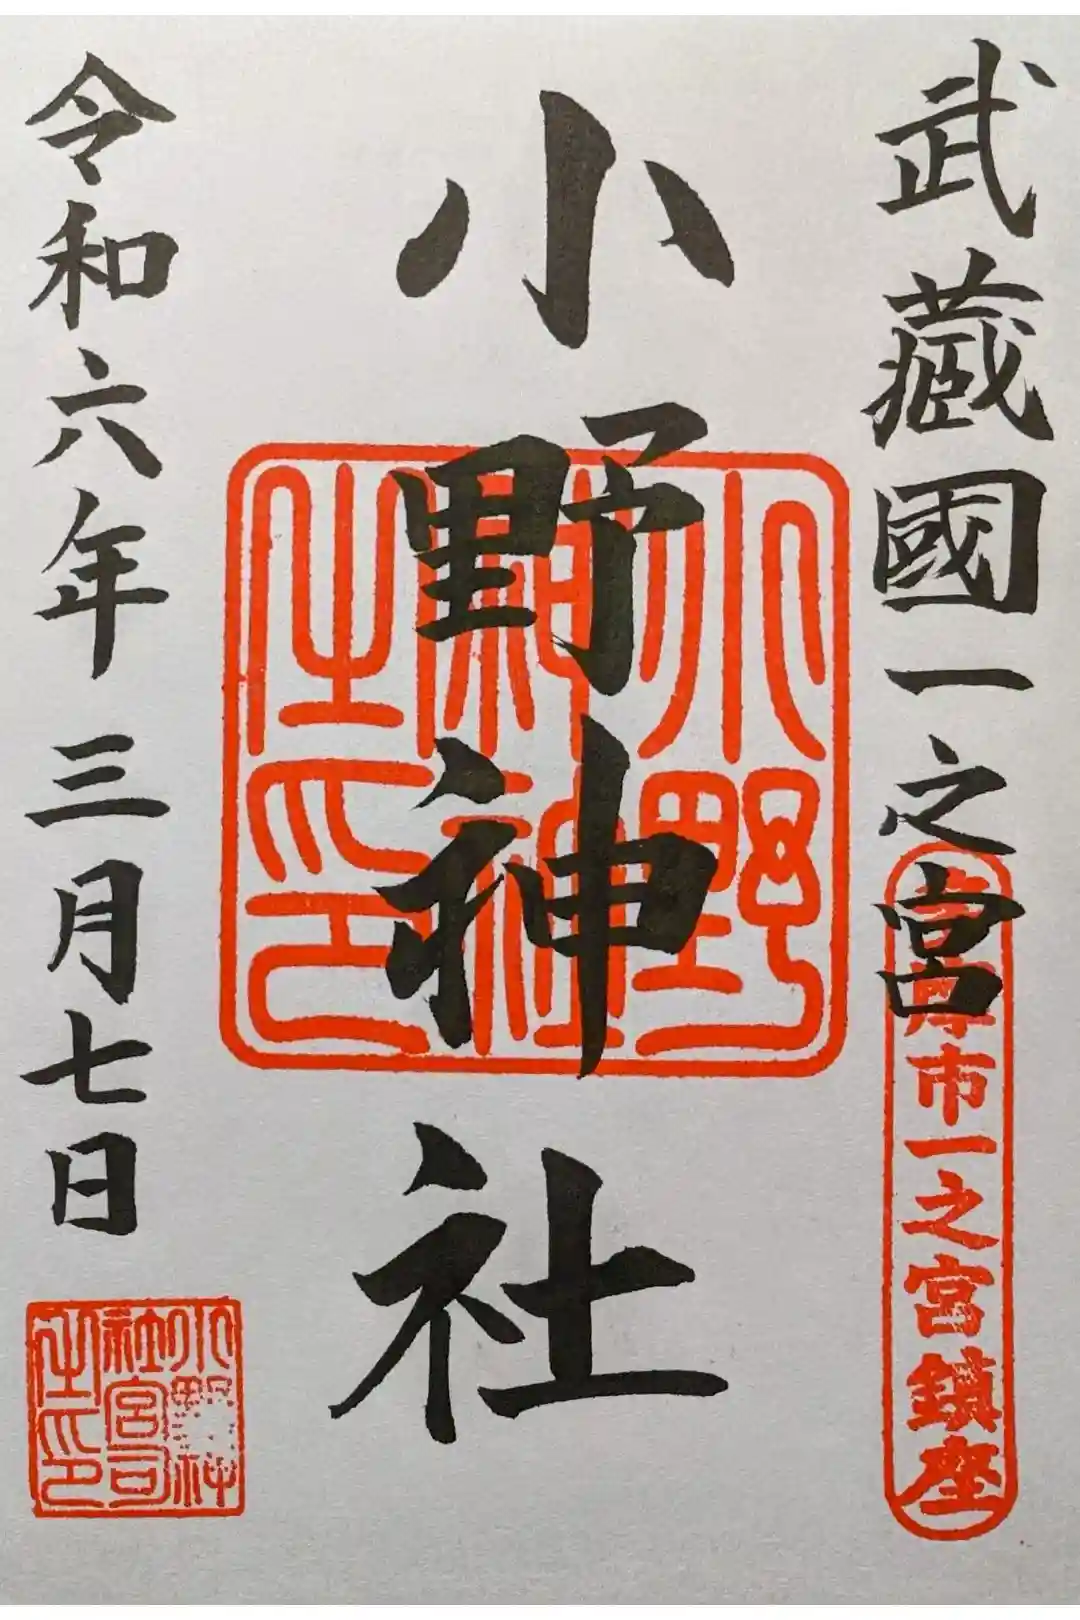 武藏國一之宮
市一之宮鎮座
小野神社
小野神社之印
令和六年三月七日
小野神社宮司之印